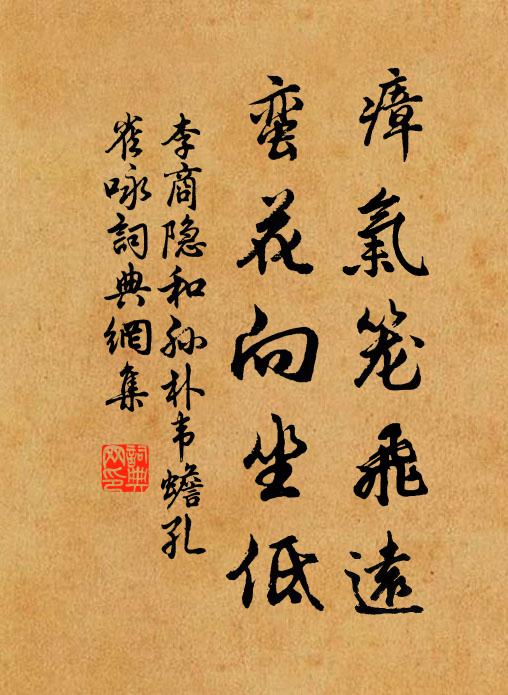 瘴氣笼飛遠
蛮花向坐低
李商隐和孙朴韦蟾孔
雀咏詞典網集
詞典網印